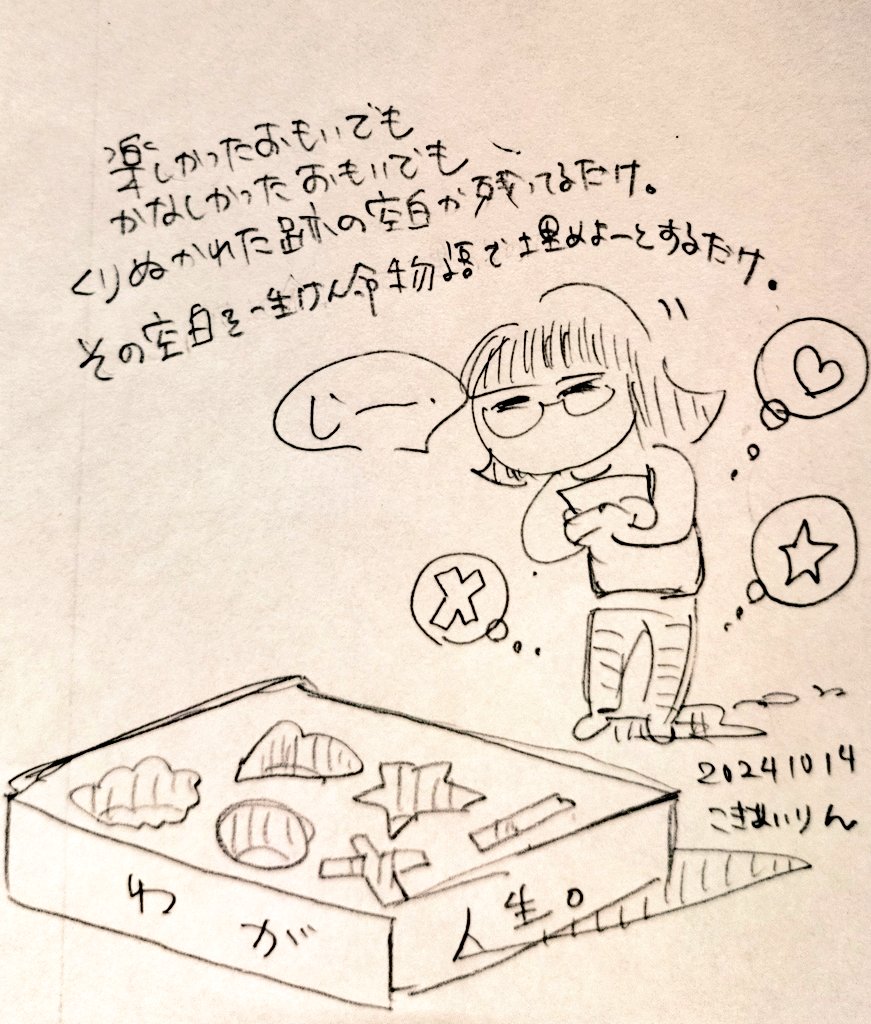 楽しかったおもいでも
かなしかったおもいでも
くりぬかれた跡の空白が残ってるだけ。
その空白を一生けん命物語で埋めよーとするだけ。
じー
20241014
わが人生。